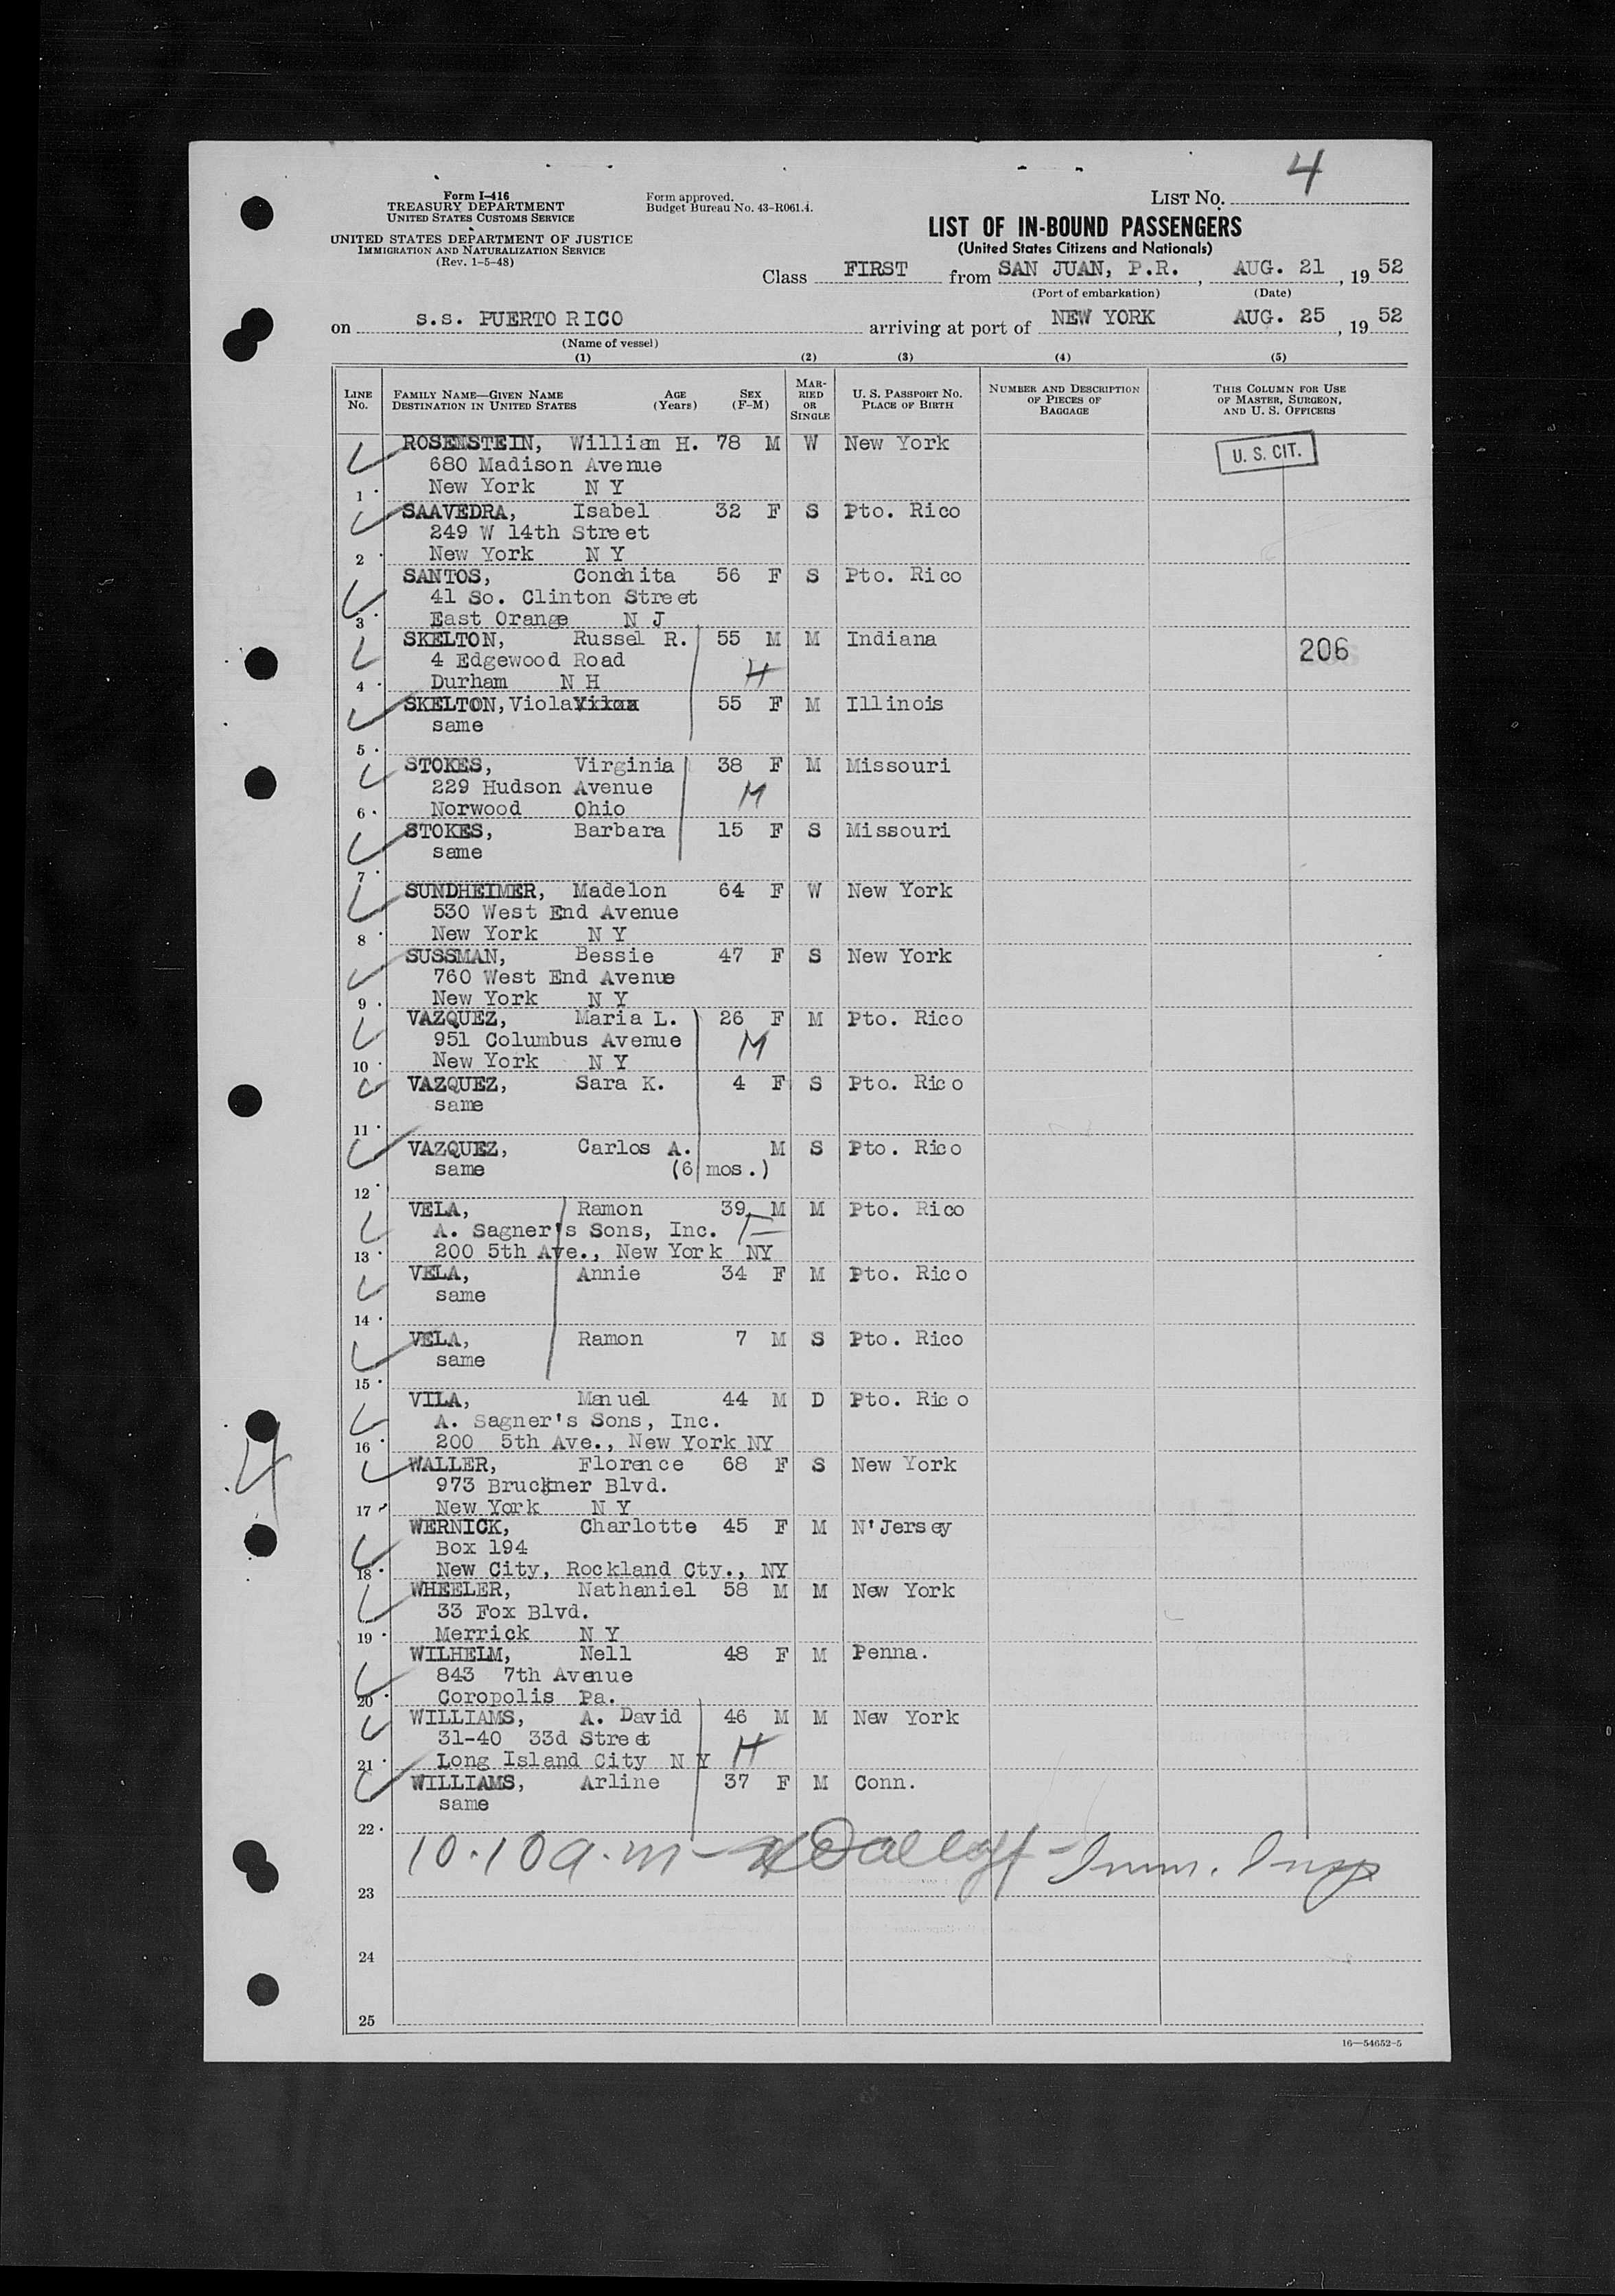 4
Form I-416
TREASURY DEPARTMENT
UNITED STATES CUSTOMS SERVICE
UNITED STATES DEPARTMENT OF JUSTICE
IMMIGRATION AND NATURALIZATION SERVICE
(Rev. 1-5-48)
Form approved.
Budget Bureau No. 43-R061.4.
LIST NO.
LIST OF IN-BOUND PASSENGERS
(United States Citizens and Nationals)
Class FIRST from SAN JUAN, P.R., AUG. 21, 1952
(Port of embarkation) (Date)
on s.s. PUERTO RICO arriving at port of NEW YORK AUG. 25, 1952
(Name of vessel)
(1) (2) (3) (4) (5)
LINE No. FAMILY NAME—GIVEN NAME DESTINATION IN UNITED STATES AGE (Years) SEX (F-M) MARRIED OR SINGLE U. S. PASSPORT NO. PLACE OF BIRTH NUMBER AND DESCRIPTION OF PIECES OF BAGGAGE THIS COLUMN FOR USE OF MASTER, SURGEON, AND U. S. OFFICERS
ROSENSTEIN, William H. 78 M W New York U. S. CIT.
680 Madison Avenue
1 New York N Y
SAAVEDRA, Isabel 32 F S Pto. Rico
249 W 14th Street
2 New York N Y
SANTOS, Conchita 56 F S Pto. Rico
41 So. Clinton Street
3 East Orange N J
SKELTON, Russel R. 55 M M Indiana 206
4 Edgewood Road H
4 Durham N H
SKELTON, Viola 55 F M Illinois
same
5
STOKES, Virginia 38 F M Missouri
229 Hudson Avenue M
6 Norwood Ohio
STOKES, Barbara 15 F S Missouri
same
7
SUNDHEIMER, Madelon 64 F W New York
530 West End Avenue
8 New York N Y
SUSSMAN, Bessie 47 F S New York
760 West End Avenue
9 New York N Y
VAZQUEZ, Maria L. 26 F M Pto. Rico
951 Columbus Avenue M
10 New York N Y
VAZQUEZ, Sara K. 4 F S Pto. Rico
same
11
VAZQUEZ, Carlos A. M S Pto. Rico
same (6 mos.)
12
VELA, Ramon 39 M M Pto. Rico
A. Sagner's Sons, Inc. F
13 200 5th Ave., New York NY
VELA, Annie 34 F M Pto. Rico
same
14
VELA, Ramon 7 M S Pto. Rico
same
15
VILA, Manuel 44 M D Pto. Rico
A. Sagner's Sons, Inc.
16 200 5th Ave., New York NY
4
WALLER, Florence 68 F S New York
973 Bruckner Blvd.
17 New York N Y
WERNICK, Charlotte 45 F M N'Jersey
Box 194
18 New City, Rockland Cty., NY
WHEELER, Nathaniel 58 M M New York
33 Fox Blvd.
19 Merrick N Y
WILHELM, Nell 48 F M Penna.
843 7th Avenue
20 Coropolis Pa.
WILLIAMS, A. David 46 M M New York
31-40 33d Street H
21 Long Island City N Y
WILLIAMS, Arline 37 F M Conn.
same
22
10.10 a.m - Imm. Insp
23
24
25
16—54652-5